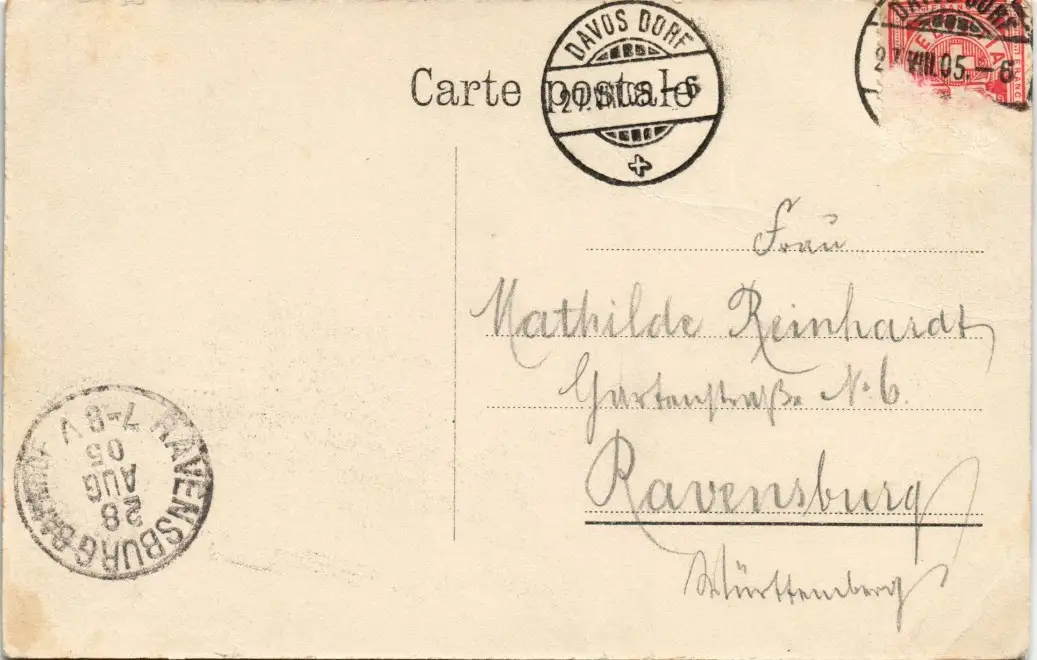 DAVOS DORF
27.VIII.05.–6
DAVOS DORF
27.VIII.05.–6
Carte postale
Frau
Mathilde Reinhardt
Gartenstraße No 6.
Ravensburg
Württemberg
RAVENSBURG BAHNHOF
28
AUG
05
7-8 V